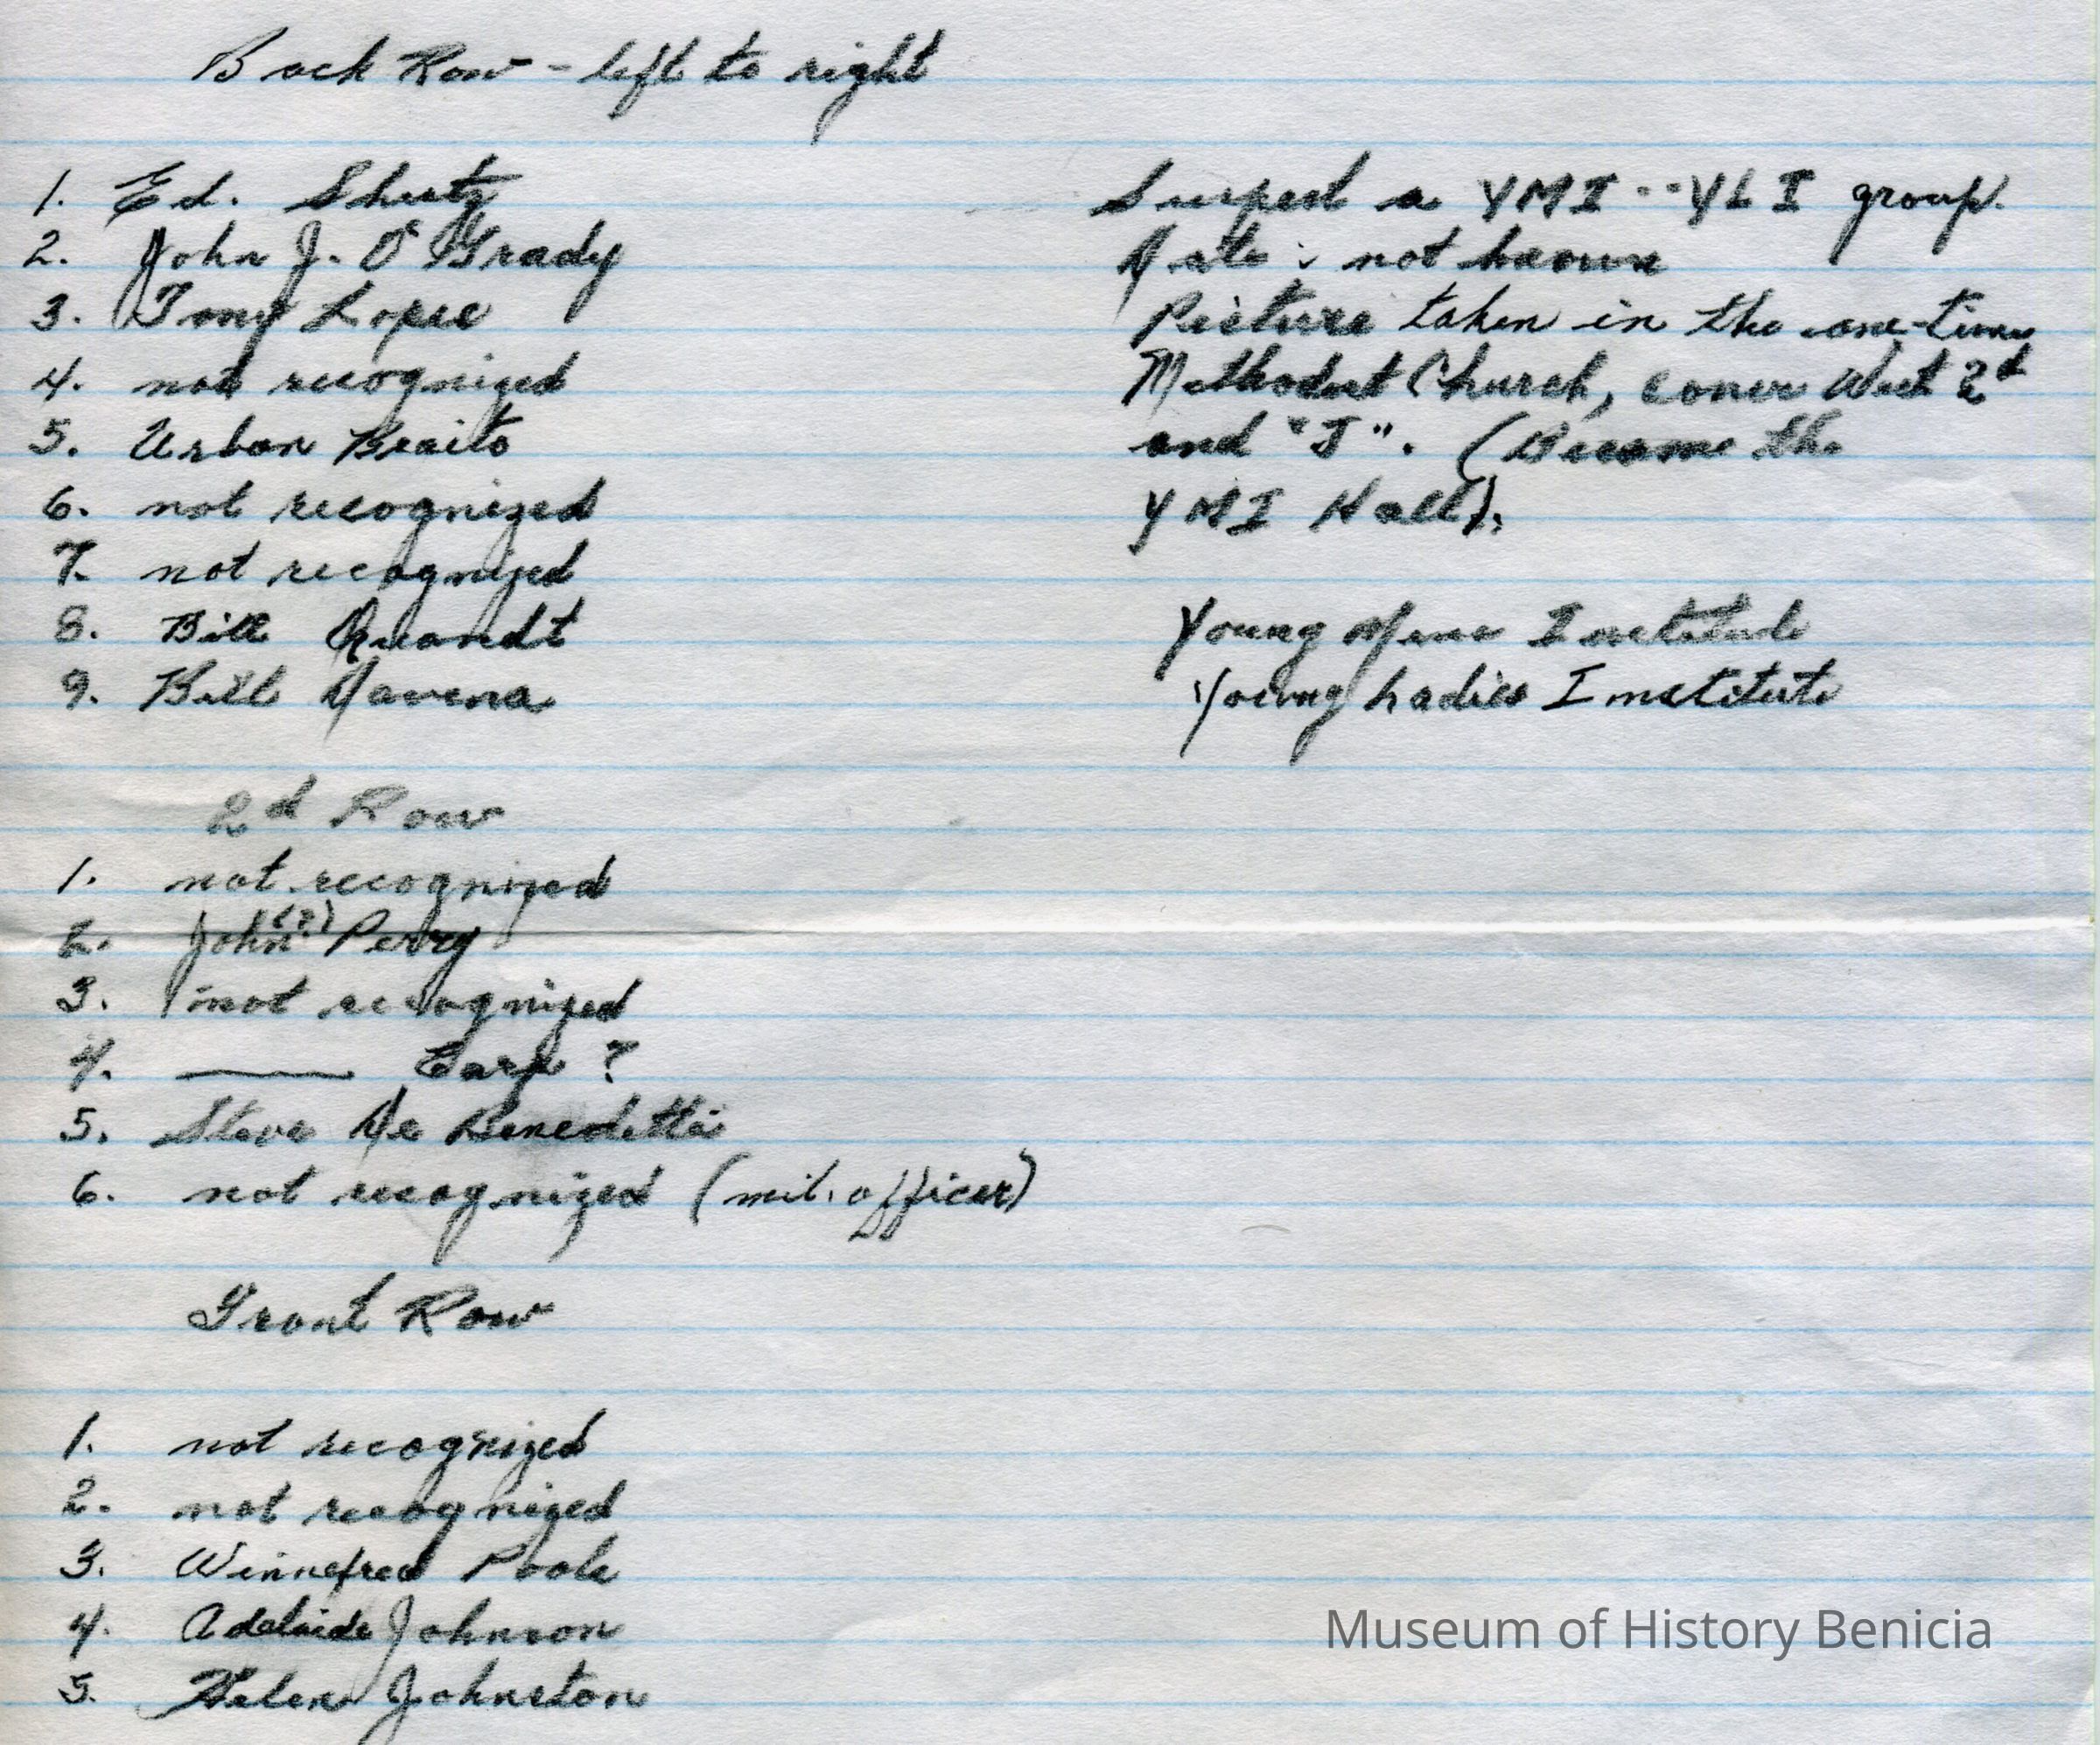 Back Row - left to right
1. Ed. Shutz
2. John J. O'Grady
3. Tony Lopes
4. not recognized
5. Urban Braito
6. not recognized
7. not recognized
8. Bill Quandt
9. Bill Davena
Suspect a YMI -- YLI group.
Date : not known
Picture taken in the one-time
Methodist Church, coner West 2d
and "J". (Became the
YMI Hall).
Young Mens Institute
Young Ladies Institute
2d Row
1. not recognized
2. John (?) Perry
3. not recognized
4. —— Earp ?
5. Steve De Benedetti
6. not recognized (mil. officer)
Front Row
1. not recognized
2. not recognized
3. Winnefred Poole
4. Adelaide Johnson
5. Helen Johnston
Museum of History Benicia